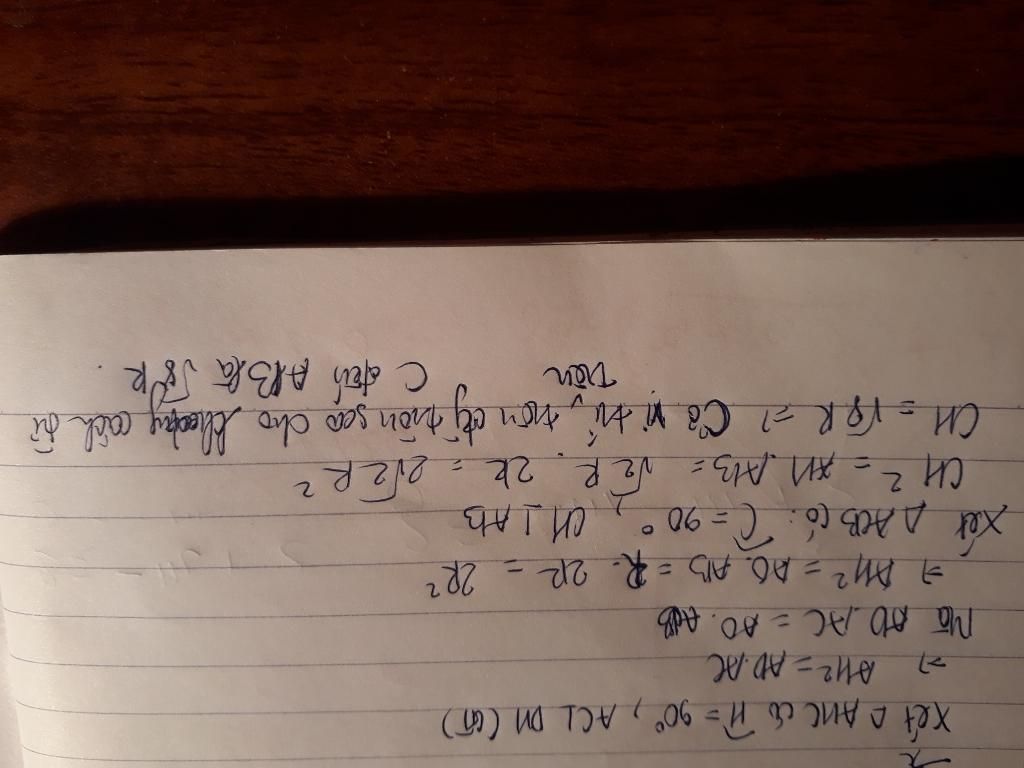 Xét Δ AHC có Ĥ = 90°, AC ⊥ DH (cmt)
⇒ AH² = AD.AC
Mà AD.AC = AO.AB
⇒ AH² = AO.AB = R. 2R = 2R²
Xét Δ ACB có: Ĉ = 90°, CH ⊥ AB
CH² = AH.AB = √2 R. 2R = 2√2 R²
CH = √8 R ⇒ C ở vị trí trên sao cho khoảng cách từ
C đến AB là √8 R.